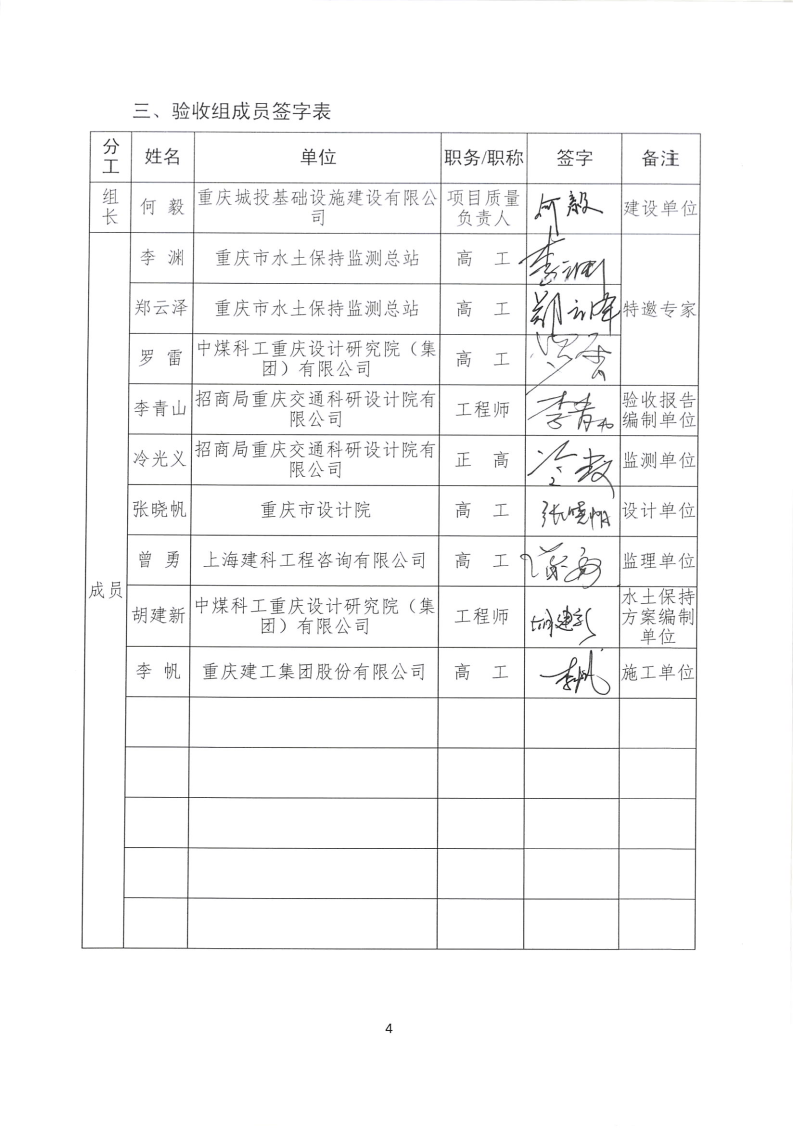 三、验收组成员签字表
分工 姓名 单位 职务/职称 签字 备注
组长 何 毅 重庆城投基础设施建设有限公司 项目质量负责人 何毅 建设单位
成员
李 渊 重庆市水土保持监测总站 高 工 李渊
郑云泽 重庆市水土保持监测总站 高 工 郑云泽 特邀专家
罗 雷 中煤科工重庆设计研究院（集团）有限公司 高 工
李青山 招商局重庆交通科研设计院有限公司 工程师 李青山 验收报告编制单位
冷光义 招商局重庆交通科研设计院有限公司 正 高 监测单位
张晓帆 重庆市设计院 高 工 张晓帆 设计单位
曾 勇 上海建科工程咨询有限公司 高 工 监理单位
胡建新 中煤科工重庆设计研究院（集团）有限公司 工程师 胡建新 水土保持方案编制单位
李 帆 重庆建工集团股份有限公司 高 工 李帆 施工单位
4